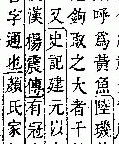 呼爲黃魚陸璣
鉤取之大者千
又史記建元以
漢楊震傳有冠
字通也顏氏家